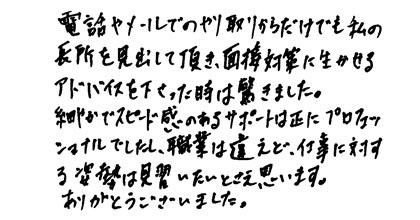 電話やメールでのやり取りからだけでも私の
長所を見出して頂き、面接対策に生かせる
アドバイスを下さった時は驚きました。
細やかでスピード感のあるサポートは正にプロフェッ
ショナルでしたし、職業は違えど、仕事に対す
る姿勢は見習いたいとさえ思います。
ありがとうございました。